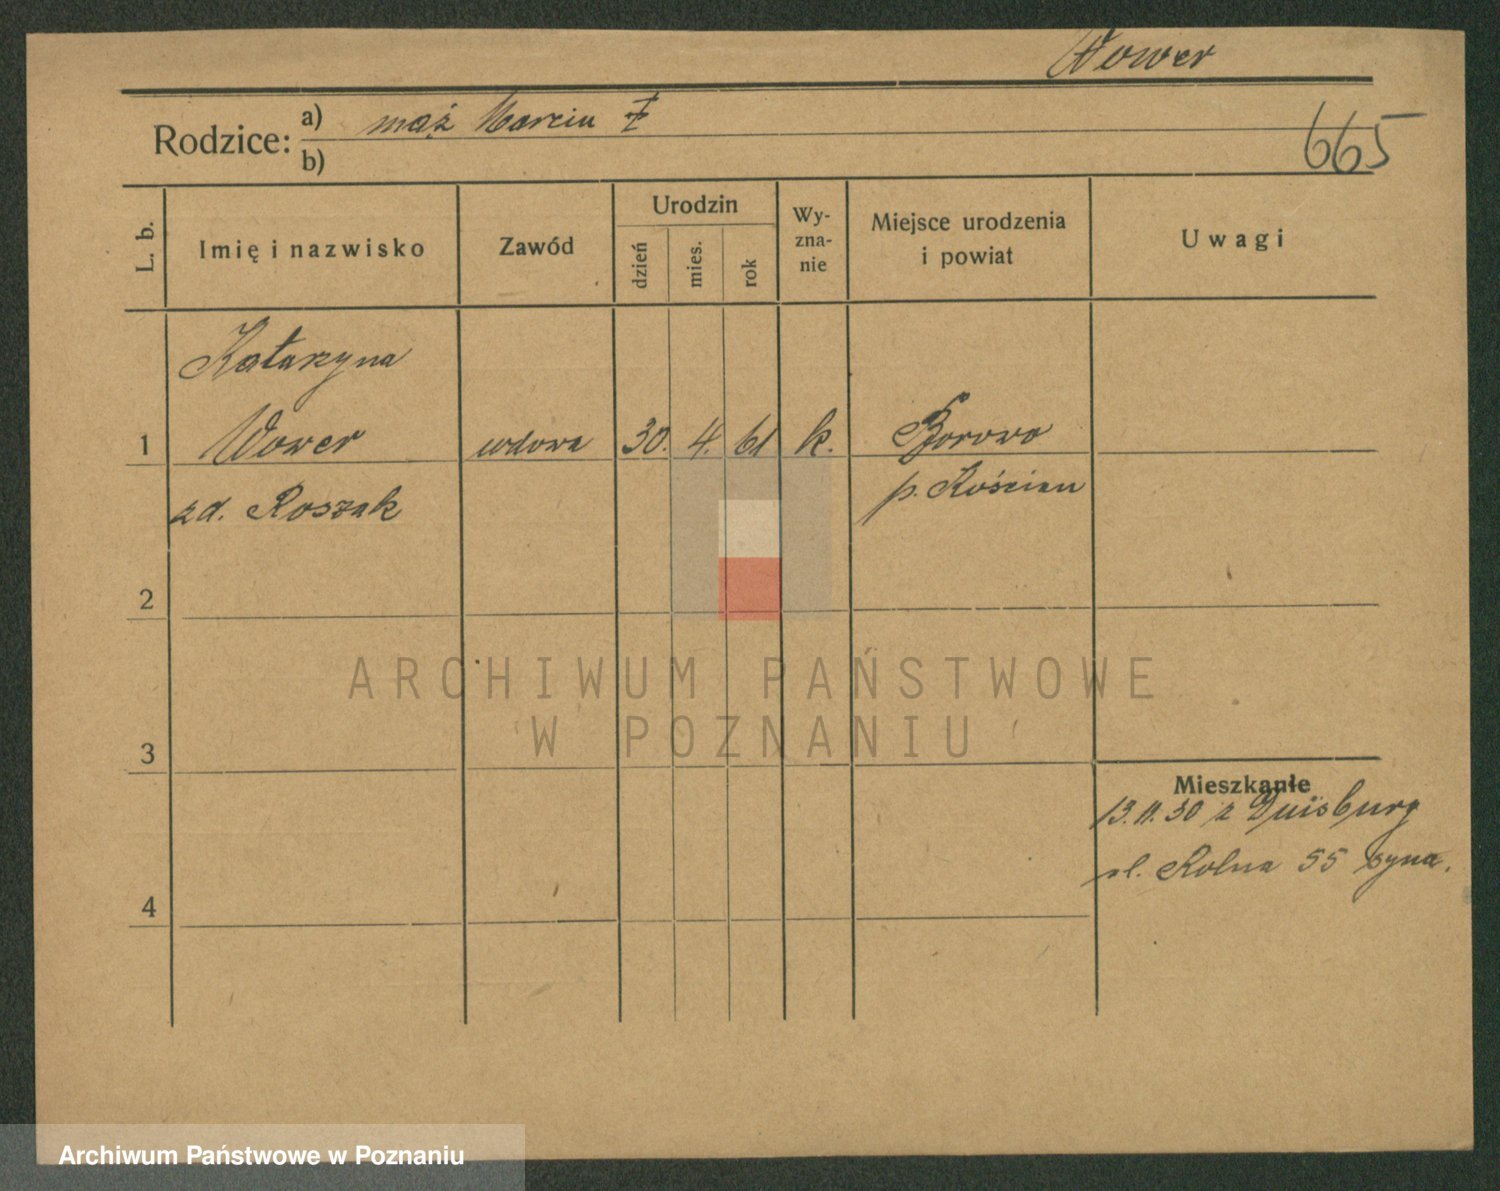 Wower
Rodzice:
a) mąż Marcin ‡
b)
665
L. b.
Imię i nazwisko
Zawód
Urodzin
dzień
mies.
rok
Wy-
zna-
nie
Miejsce urodzenia
i powiat
Uwagi
Katarzyna
1 Wower wdowa 30. 4. 61 k. Borowo
zd. Roszak p. Kościan
2
3
4
Mieszkanie
13.11.30 z Duisburg
ul. Rolna 55 syna.
ARCHIWUM PAŃSTWOWE
W POZNANIU
Archiwum Państwowe w Poznaniu